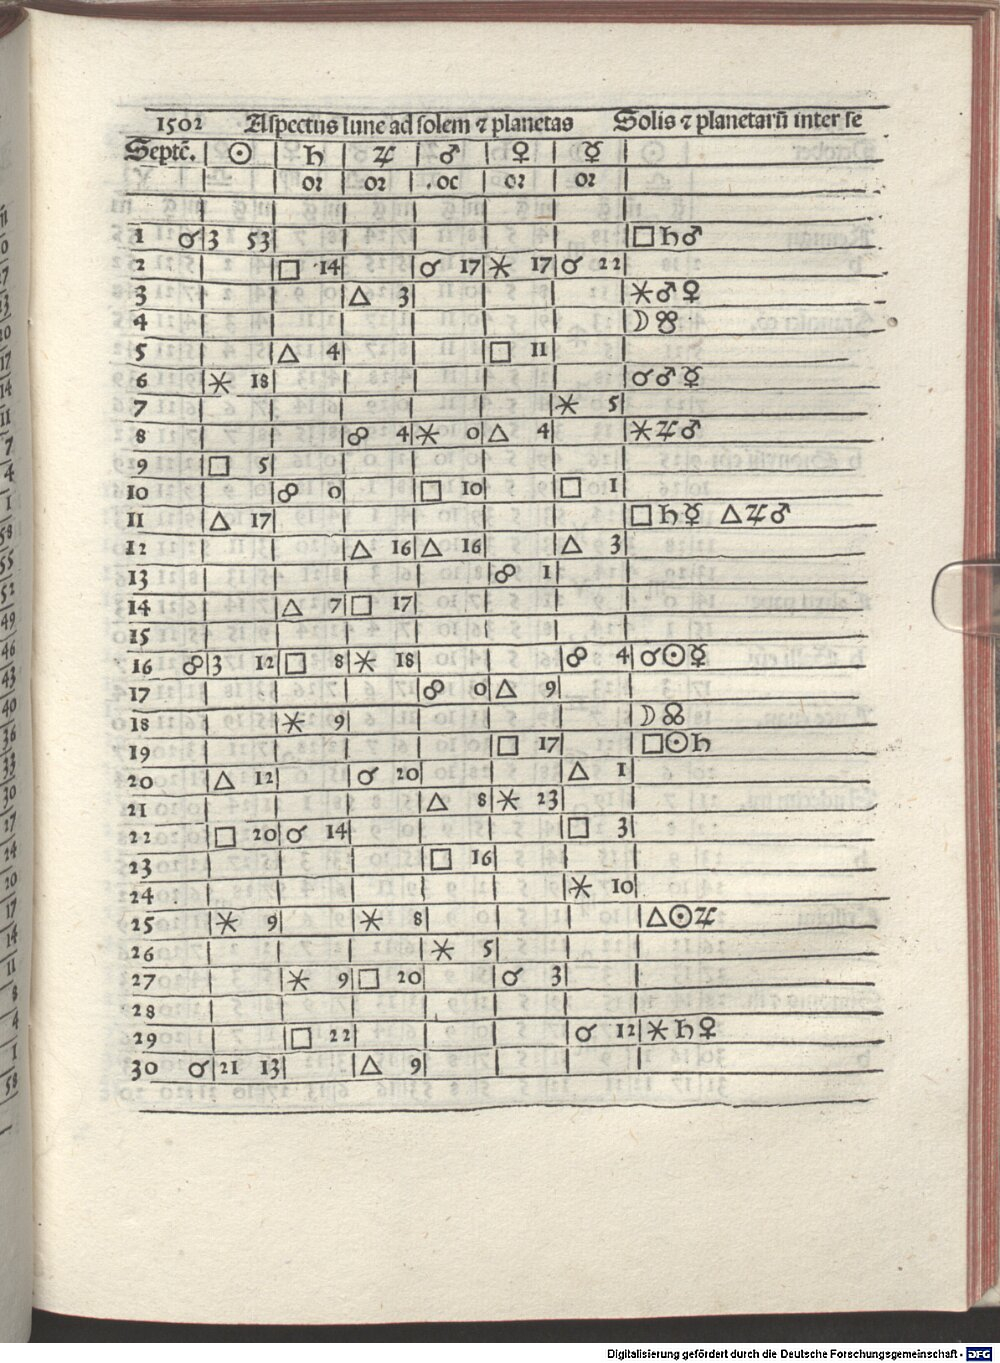 1502 Aspectus lune ad solem ⁊ planetas Solis ⁊ planetarū inter se
Septē. ☉ ♄ ♃ ♂ ♀ ☿
oꝛ oꝛ .oc oꝛ oꝛ
1 ☌ 3 53 □♄♂
2 □ 14 ☌ 17 ⚹ 17 ☌ 22
3 △ 3 ⚹♂♀
4 ☽☋
5 △ 4 □ 11
6 ⚹ 18 ☌♂☿
7 ⚹ 5
8 ☍ 4 ⚹ 0 △ 4 ⚹♃♂
9 □ 5
10 ☍ 0 □ 10 □ 1
11 △ 17 □♄☿ △♃♂
12 △ 16 △ 16 △ 3
13 ☍ 1
14 △ 7 □ 17
15
16 ☍ 3 12 □ 8 ⚹ 18 ☍ 4 ☌☉☿
17 ☍ 0 △ 9
18 ⚹ 9 ☽☊
19 □ 17 □☉♄
20 △ 12 ☌ 20 △ 1
21 △ 8 ⚹ 23
22 □ 20 ☌ 14 □ 3
23 □ 16
24 ⚹ 10
25 ⚹ 9 ⚹ 8 △☉♃
26 ⚹ 5
27 ⚹ 9 □ 20 ☌ 3
28
29 □ 22 ☌ 12 ⚹♄♀
30 ☌ 21 13 △ 9
Digitalisierung gefördert durch die Deutsche Forschungsgemeinschaft - DFG